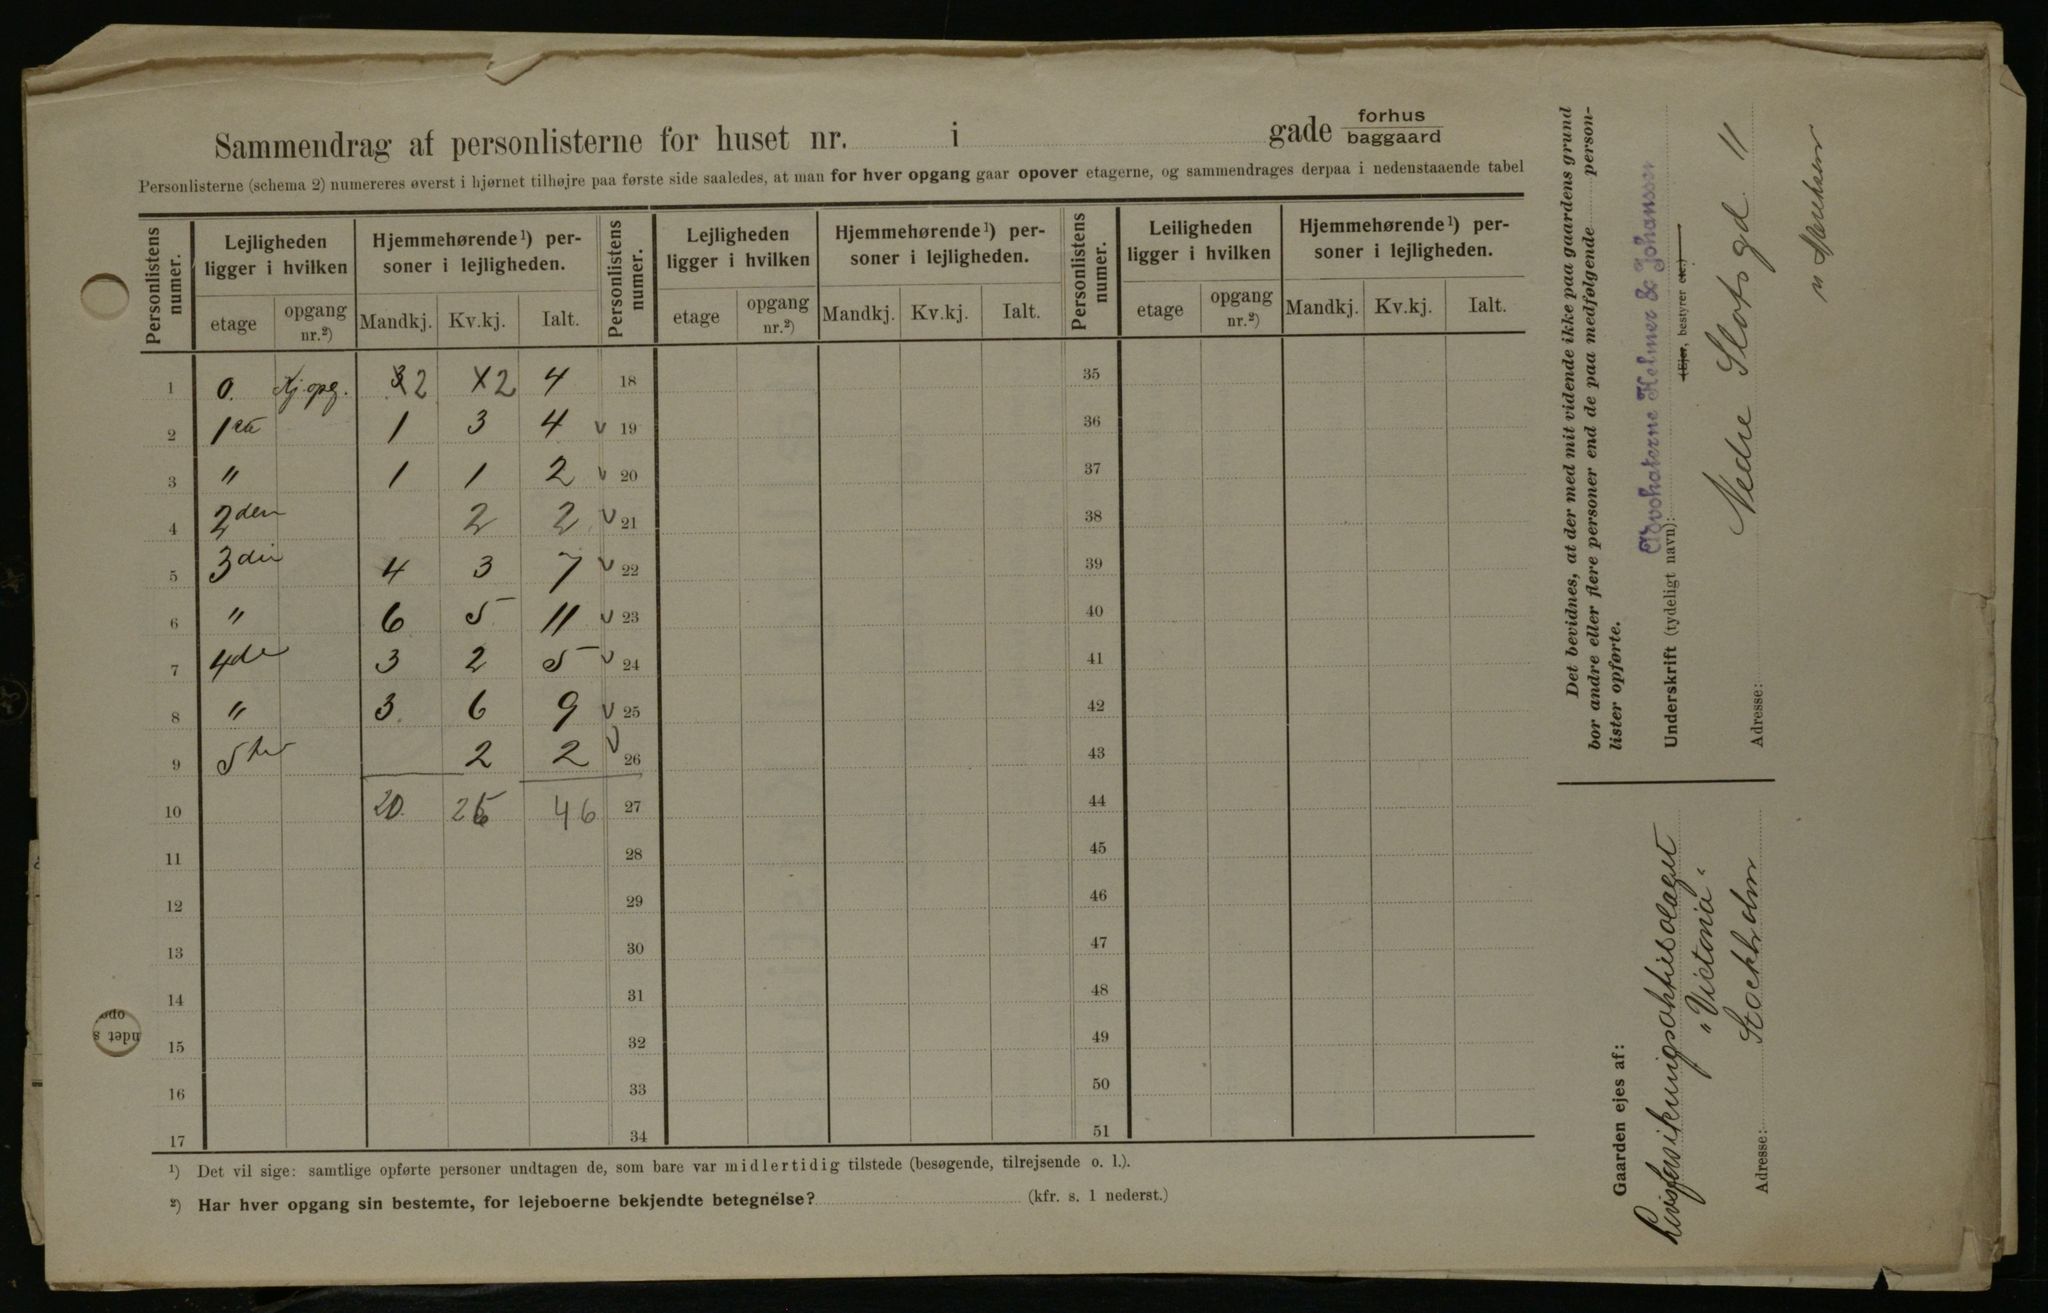 Sammendrag af personlisterne for huset nr. i gade forhus
baggaard
Personlisterne (schema 2) numereres øverst i hjørnet tilhøjre paa første side saaledes, at man for hver opgang gaar opover etagerne, og sammendrages derpaa i nedenstaaende tabel
Personlistens numer. Lejligheden ligger i hvilken Hjemmehørende¹) personer i lejligheden. Personlistens numer. Lejligheden ligger i hvilken Hjemmehørende¹) personer i lejligheden. Personlistens numer. Leiligheden ligger i hvilken Hjemmehørende¹) personer i lejligheden.
etage opgang nr.²) Mandkj. Kv.kj. Ialt. etage opgang nr.²) Mandkj. Kv.kj. Ialt. etage opgang nr.²) Mandkj. Kv.kj. Ialt.
1 0. Kj. opg. 2 2 4 18 35
2 1ste 1 3 4 v 19 36
3 " 1 1 2 v 20 37
4 2den 2 2 v 21 38
5 3die 4 3 7 v 22 39
6 " 6 5 11 v 23 40
7 4de 3 2 5 v 24 41
8 " 3 6 9 v 25 42
9 5te 2 2 v 26 43
10 20 26 46 27 44
11 28 45
12 29 46
13 30 47
14 31 48
15 32 49
16 33 50
17 34 51
¹) Det vil sige: samtlige opførte personer undtagen de, som bare var midlertidig tilstede (besøgende, tilrejsende o. l.).
²) Har hver opgang sin bestemte, for lejeboerne bekjendte betegnelse? (kfr. s. 1 nederst.)
Det bevidnes, at der med mit vidende ikke paa gaardens grund
bor andre eller flere personer end de paa medfølgende person-
lister opførte.
Advokaterne Helmer & Johanssen
Underskrift (tydeligt navn):
(Ejer, bestyrer etc.)
Nedre Slots gd. 11
Adresse:
Gaarden ejes af:
Livsforsikringsaktiebolaget
"Victoria"
Stockholm
Adresse:
opp
ndet s